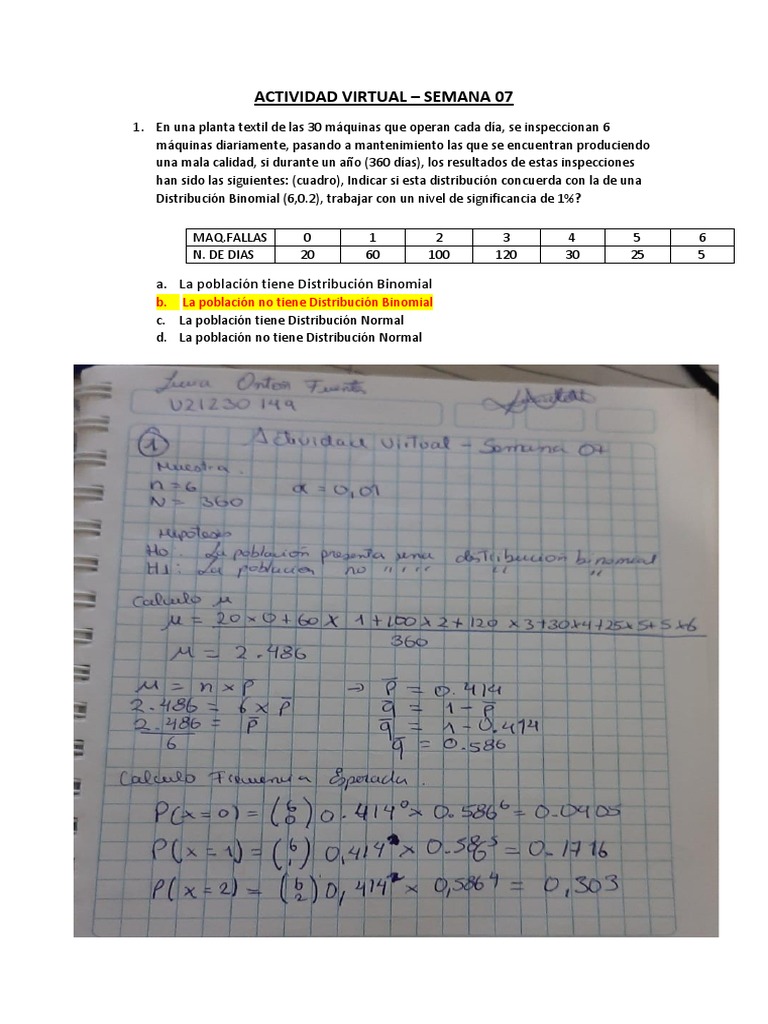 ACTIVIDAD VIRTUAL – SEMANA 07
1. En una planta textil de las 30 máquinas que operan cada día, se inspeccionan 6
máquinas diariamente, pasando a mantenimiento las que se encuentran produciendo
una mala calidad, si durante un año (360 días), los resultados de estas inspecciones
han sido las siguientes: (cuadro), Indicar si esta distribución concuerda con la de una
Distribución Binomial (6,0.2), trabajar con un nivel de significancia de 1%?
MAQ.FALLAS 0 1 2 3 4 5 6
N. DE DIAS 20 60 100 120 30 25 5
a. La población tiene Distribución Binomial
b. La población no tiene Distribución Binomial
c. La población tiene Distribución Normal
d. La población no tiene Distribución Normal
U21230149
① Actividad Virtual - Semana 07
Muestra.
n=6 α=0,01
N= 360
Hipotesis
H0: La población presenta una distribución binomial
H1: La población no " " " " " "
Calculo μ
μ = 20 x 0 + 60 x 1 + 100 x 2 + 120 x 3 + 30 x 4 + 25 x 5 + 5 x 6
360
μ = 2.486
μ = n x p̄ → p̄ = 0.414
2.486 = 6 x p̄ q̄ = 1 - p̄
2.486 = p̄ q̄ = 1 - 0.414
6 q̄ = 0.586
Calculo Frecuencia Esperada.
P(x=0) = (6 0) 0.414⁰ x 0.586⁶ = 0.0405
P(x=1) = (6 1) 0,414 x 0.586⁵ = 0.1716
P(x=2) = (6 2) 0,414² x 0,586⁴ = 0,303